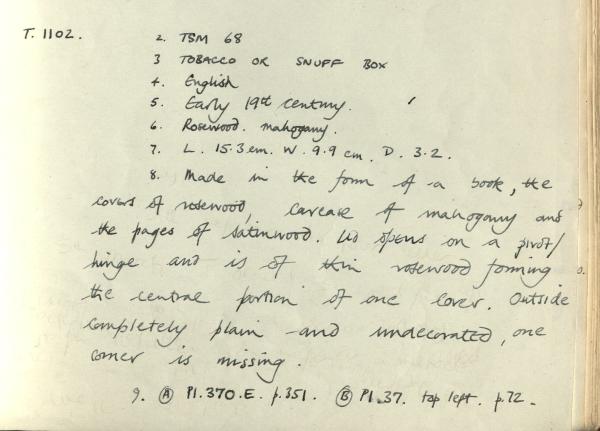 T. 1102. 2. TSM 68
3 TOBACCO OR SNUFF BOX
4. English
5. Early 19th century.
6. Rosewood. mahogany.
7. L. 15.3 cm. W. 9.9 cm. D. 3.2.
8. Made in the form of a book, the
covers of rosewood, carcase of mahogany and
the pages of satinwood. Lid opens on a pivot/
hinge and is of thin rosewood forming
the central portion of one cover. Outside
completely plain and undecorated, one
corner is missing.
9. Ⓐ Pl. 370. E. p. 351. Ⓑ Pl. 37. top left. p. 72.